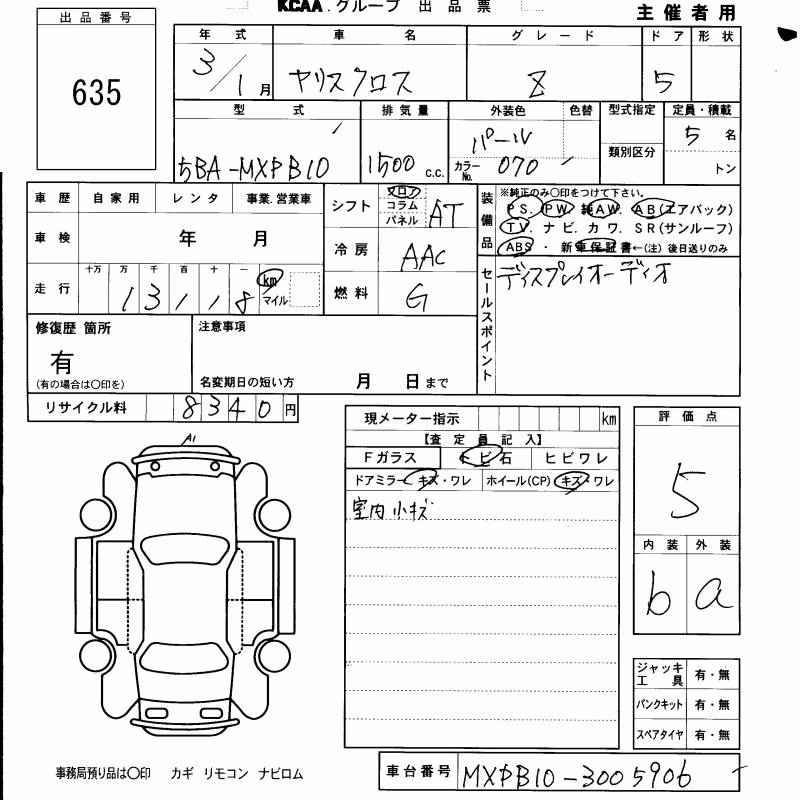 KCAA グループ 出品票
主催者用
出品番号
635
年式 車名 グレード ドア 形状
3/1月 ヤリスクロス Z 5
型式 排気量 外装色 色替 型式指定 定員・積載
5BA-MXPB10 1500 c.c. パール カラーNo. 070 類別区分 5名
トン
車歴 自家用 レンタ 事業.営業車
車検 年 月
走行 十万 万 千 百 十 一
1 3 1 1 8 km マイル
シフト フロア コラム パネル AT
冷房 AAC
燃料 G
装備品
※純正のみ〇印をつけて下さい。
PS. PW. 純AW. AB(エアバック)
TV. ナビ. カワ. SR(サンルーフ)
ABS ・ 新車保証書←(注)後日送りのみ
セールスポイント
ディスプレイオーディオ
修復歴 箇所
有
(有の場合は〇印を)
注意事項
名変期日の短い方 月 日まで
リサイクル料 8340円
A1
現メーター指示 km
【査定員記入】
Fガラス トビ石 ヒビワレ
ドアミラー キズ・ワレ ホイール(CP) キズ・ワレ
室内小キズ
評価点
5
内装 外装
b a
ジャッキ工具 有・無
パンクキット 有・無
スペアタイヤ 有・無
事務局預り品は〇印 カギ リモコン ナビロム
車台番号 MXPB10-3005906